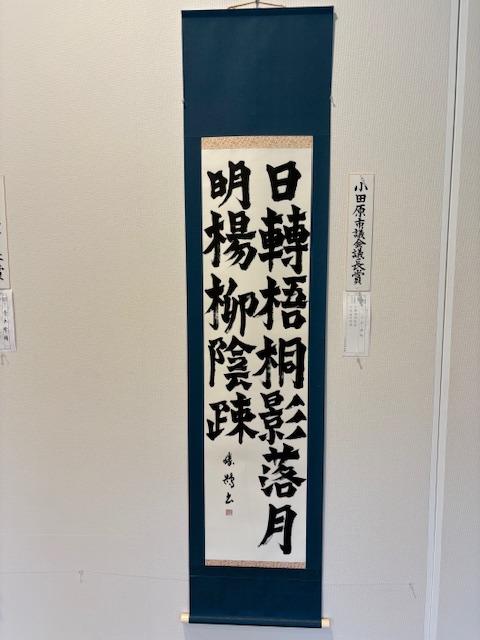 日轉梧桐影落月
明楊柳陰疎
小田原市議会議長賞